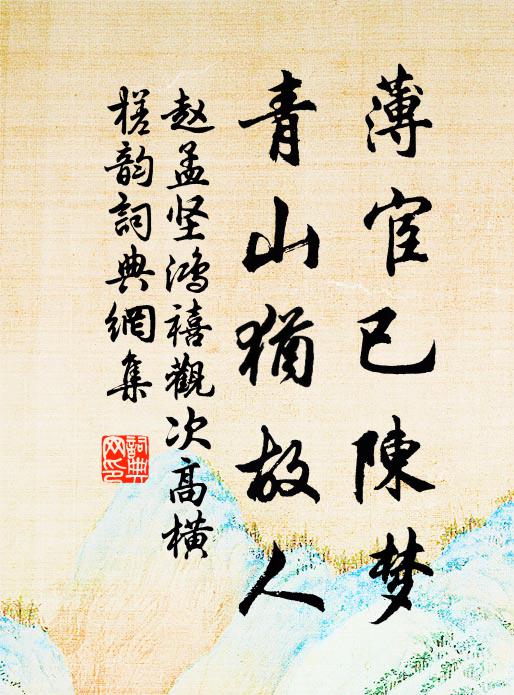 薄宦已陳梦
青山猶故人
赵孟坚鸿禧觀次高橫
槎韵詞典網集
詞典网印